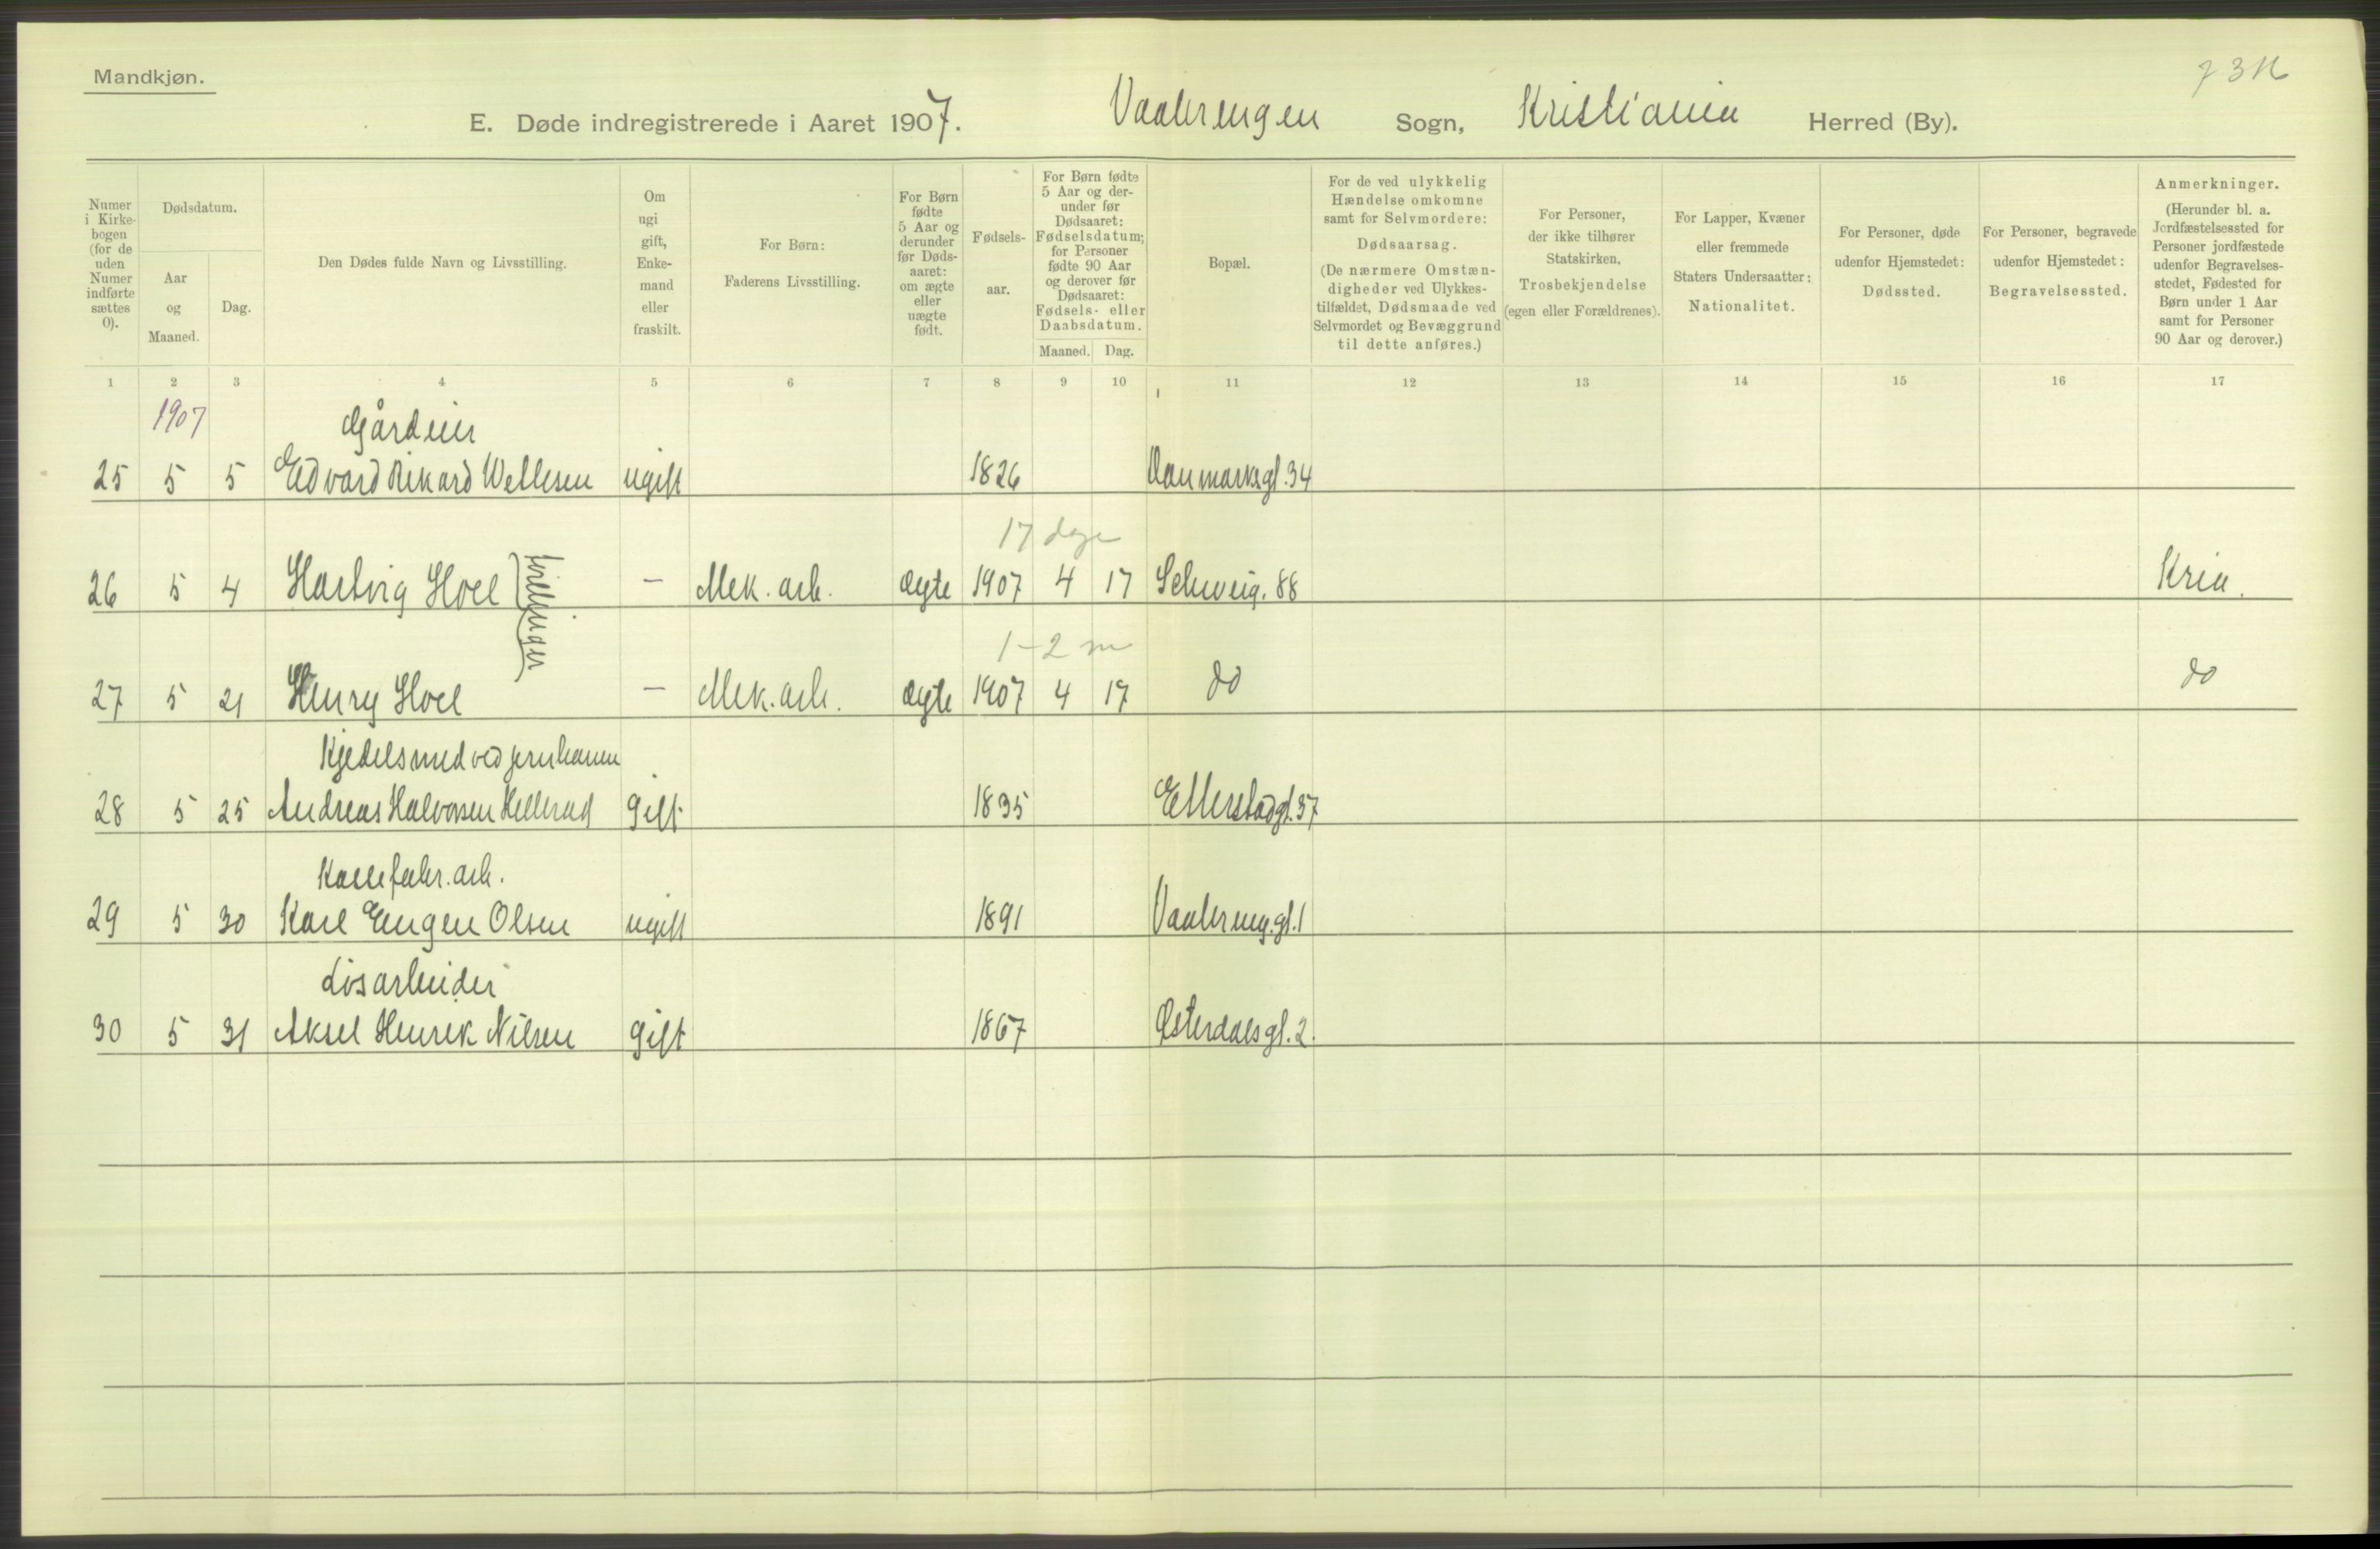 Mandkjøn.
73 M
E. Døde indregistrerede i Aaret 1907. Vaalerengen Sogn, Kristiania Herred (By).
Numer i Kirkebogen (for de uden Numer indførte sættes 0).
Dødsdatum.
Aar og Maaned.
Dag.
Den Dødes fulde Navn og Livsstilling.
Om ugi gift, Enkemand eller fraskilt.
For Børn:
Faderens Livsstilling.
For Børn fødte 5 Aar og derunder før Dødsaaret: om ægte eller uægte født.
Fødselsaar.
For Børn fødte 5 Aar og derunder før Dødsaaret: Fødselsdatum; for Personer fødte 90 Aar og derover før Dødsaaret: Fødsels- eller Daabsdatum.
Maaned. Dag.
Bopæl.
For de ved ulykkelig Hændelse omkomne samt for Selvmordere: Dødsaarsag. (De nærmere Omstændigheder ved Ulykkestilfældet, Dødsmaade ved Selvmordet og Bevæggrund til dette anføres.)
For Personer, der ikke tilhører Statskirken, Trosbekjendelse (egen eller Forældrenes).
For Lapper, Kvæner eller fremmede Staters Undersaatter: Nationalitet.
For Personer, døde udenfor Hjemstedet: Dødssted.
For Personer, begravede udenfor Hjemstedet: Begravelsessted.
Anmerkninger. (Herunder bl. a. Jordfæstelsessted for Personer jordfæstede udenfor Begravelsesstedet, Fødested for Børn under 1 Aar samt for Personer 90 Aar og derover.)
1 2 3 4 5 6 7 8 9 10 11 12 13 14 15 16 17
1907 Gårdeier
25 5 5 Edvard Rikard Wellesen ugift 1826 Danmarksgt. 34
17 dage
26 5 4 Hartvig Hoel tvillinger — Mek. arb. ægte 1907 4 17 Schweig. 88 Kria.
1-2 m
27 5 21 Henry Hoel — Mek. arb. ægte 1907 4 17 do do
Kjedelsmed ved jernbanen
28 5 25 Andreas Halvorsen Hellerud Gift 1835 Etterstadgt. 37
fabr. arb.
29 5 30 Karl Eugen Olsen ugift 1891 Vaalereng. gt. 1
Løsarbeider
30 5 31 Aksel Henrik Nilsen Gift 1867 Østerdalsgt. 2.